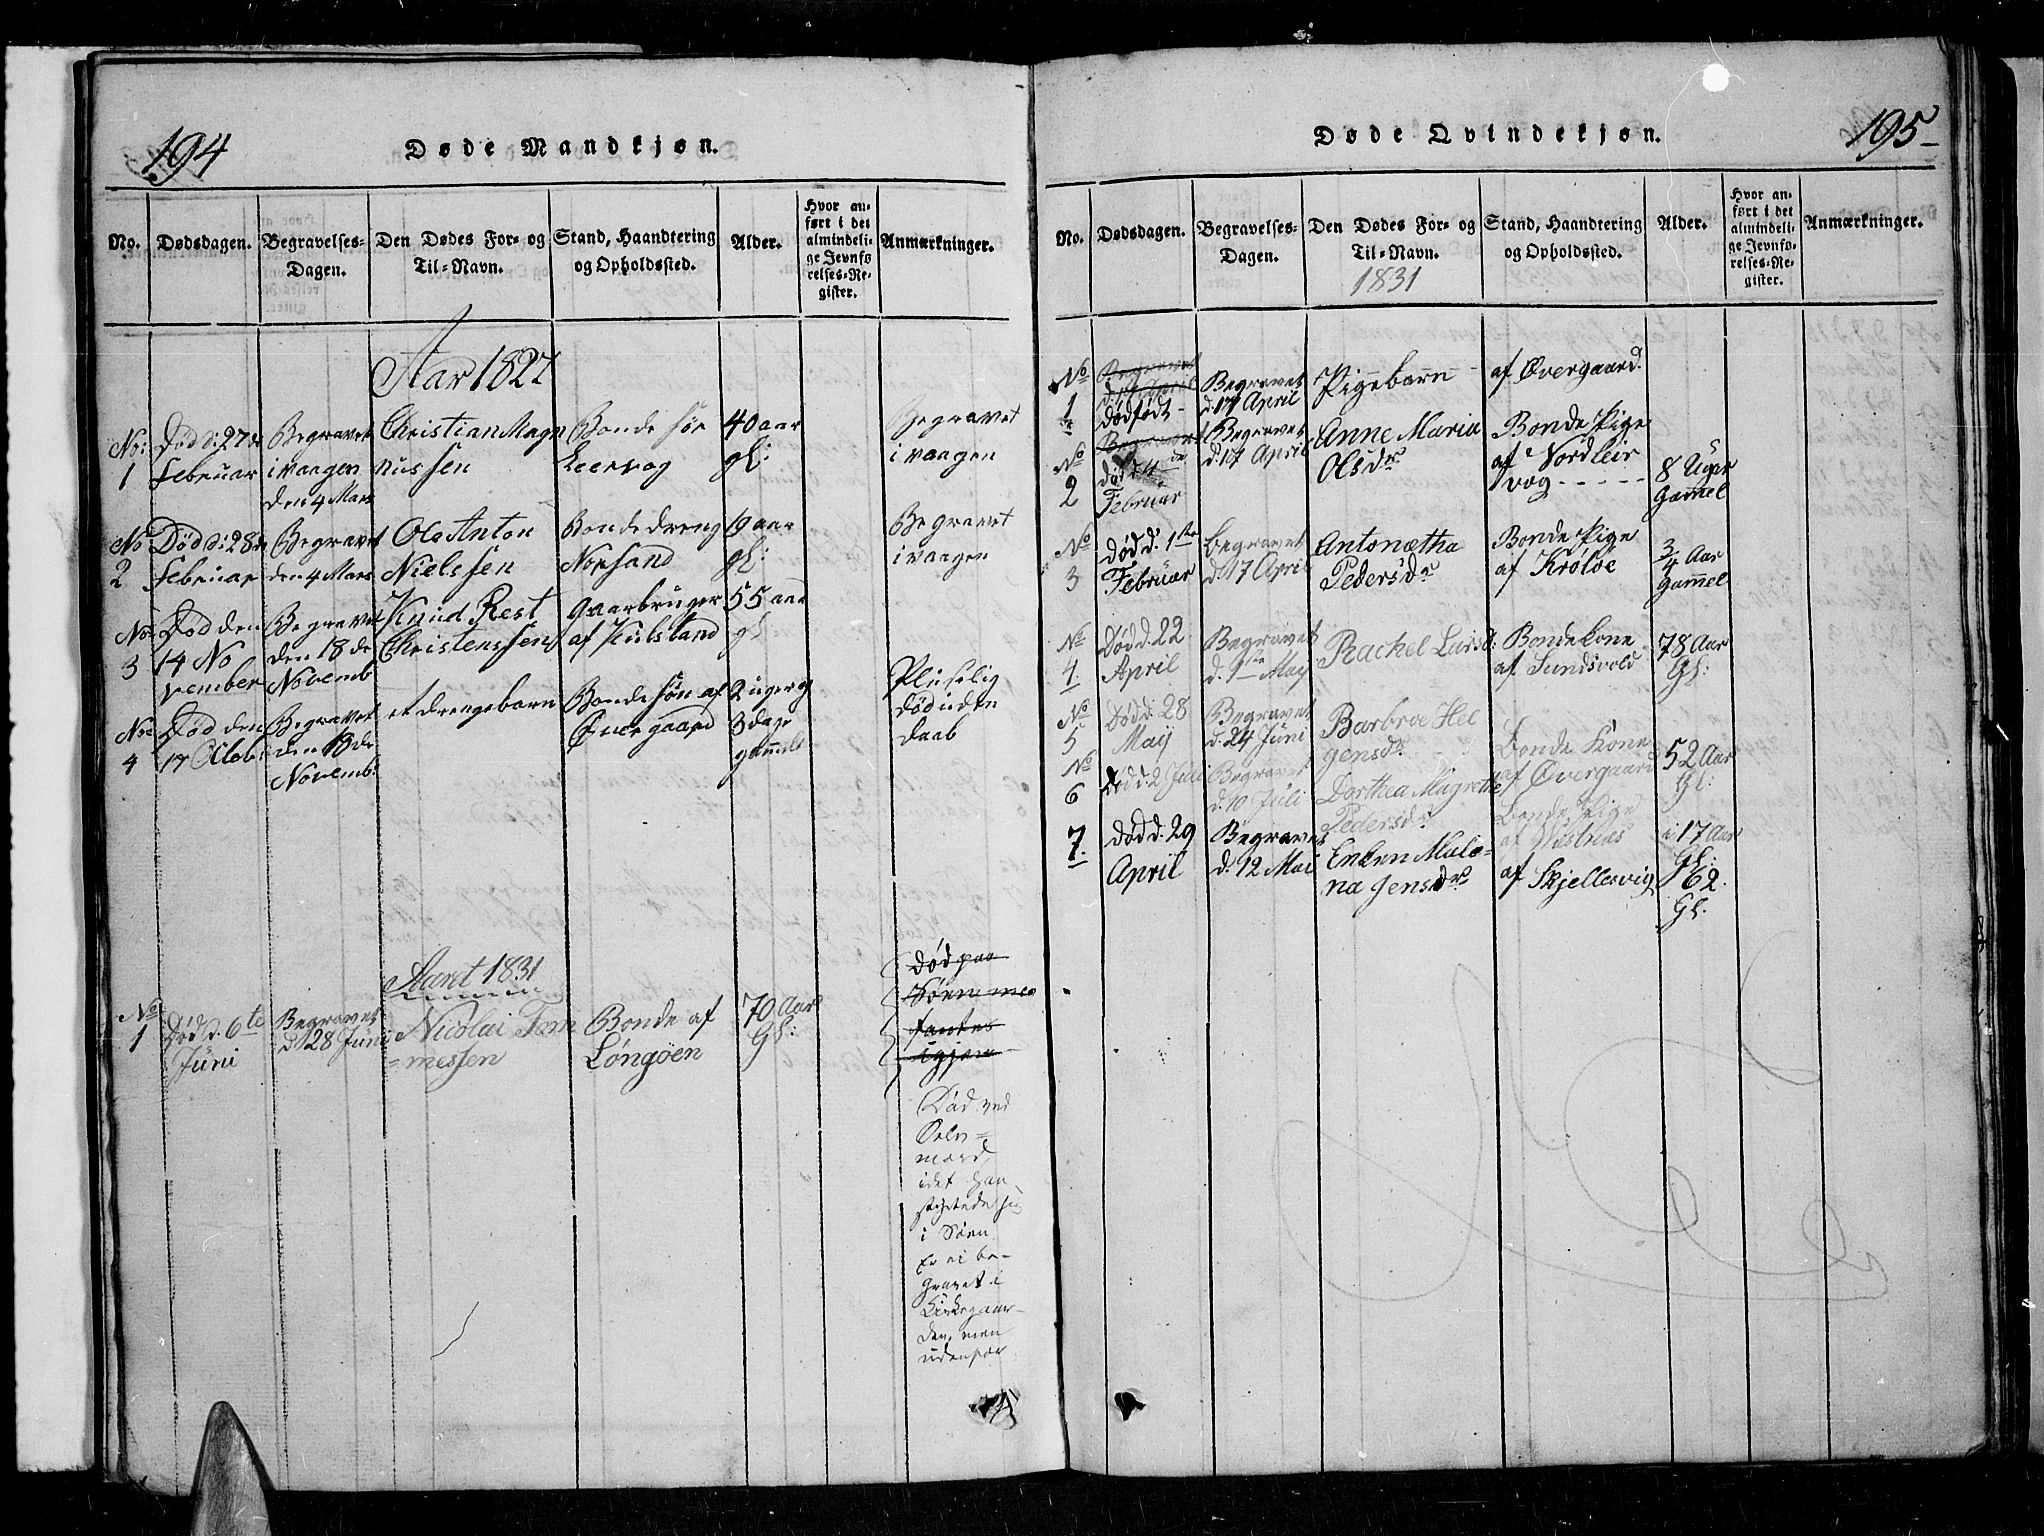 194
Døde Mandkjøn.
No.
Dødsdagen.
Begravelses-
Dagen.
Den Dødes For- og
Til-Navn.
Stand, Haandtering
og Opholdssted.
Alder.
Hvor an-
ført i det
almindeli-
ge Jevnfø-
relses-Re-
gister.
Anmærkninger.
Aar 1827
No:
1
Død d: 27de
Februar
Begravet
i vaagen
den 4 Mars
Christian Mag
nussen
Bonde
Leervog
40 aar
gl:
Begravet
i vaagen
No
2
Død d: 28de
Februar
Begravet
den 4 Mars
Ole Anton
Nielssen
Bonde dreng
Norsand
19 aar
gl:
Begravet
i vaagen
No
3
Død den
14 No
vember
Begravet
den 18 de
Novemb
Knud Rest
Christenssen
Gaarbruger
af Kulstand
55 aar
gl.
No
4
Død den
17 Octob:
Begravet
den 18de
Novemb:
et drengebarn
Bonde søn af
Øvergaard
2 uger og
3 dage
gammel
Pluselig
død uden
daab
Aaret 1831
No
1
Død d. 6te
Juni
Begravet
d 28 Juni
Nicolai Tom
=messen
Bonde af
Løngøen
70 Aar
Gl:
Død paa
Søen men
fantes
igjen
Død ved
Selv=
mord,
idet han
styrtede sig
i Søen.
Er ei be-
gravet i
Kirkegaar-
den, men
udenfor
195
Døde Qvindekjøn.
No.
Dødsdagen.
Begravelses-
Dagen.
Den Dødes For- og
Til-Navn.
1831
Stand, Haandtering
og Opholdssted.
Alder.
Hvor an-
ført i det
almindeli-
ge Jevnfø-
relses-Re-
gister.
Anmærkninger.
No
1
Begravet
dødfødt
Begravet
d. 17 April
Pigebarn
af Øvergaard
No
2
Begravet
Februar
Begravet
d. 17 April
Anne Maria
Olsdr
Bonde Pige
af Nordleir
vog
8 Uger
Gammel
No
3
Død d. 1ste
Februar
Begravet
d 17 April
Antonætha
Pedersdr
Bonde Pige
af Kroløe
3/4 Aar
Gammel
No
4.
Død d. 22
April
Begravet
d. 1ste May
Rachel Larsd:
Bondekone
af Sundsvold
78 Aar
Gl:
No
5
Død d. 28
May
Begravet
d. 24 Juni
Barbroe Hel
gensdr
Bonde Kone
af Øvergaard
52 Aar
Gl:
No
6
Død d. 2 Juli
Begravet
d. 10 Juli
Dorthea Magrethe
Pedersdr
Bonde Pige
af
17 Aar
Gl:
7.
død d. 29
April
Begravet
d. 12 Mai
Enken Male=
na Jensdr
af Skjellesvig
62.
Gl.